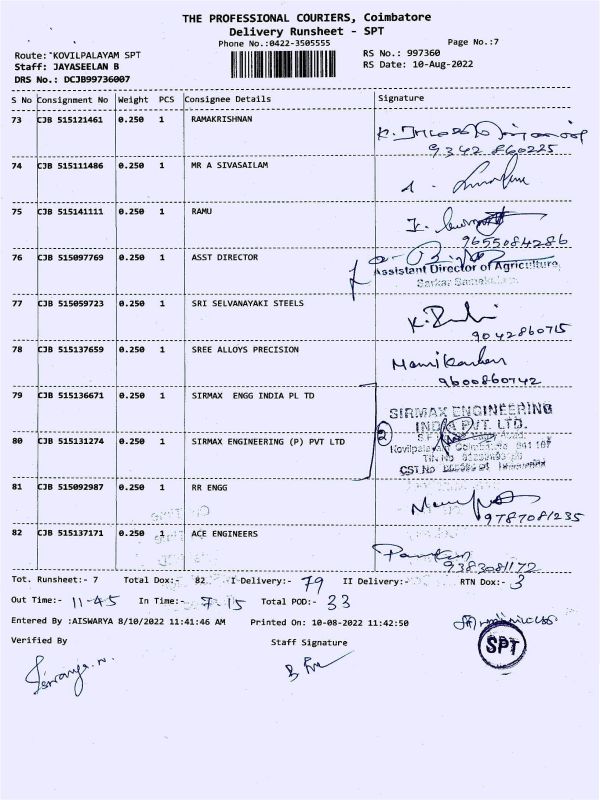 THE PROFESSIONAL COURIERS, Coimbatore
Delivery Runsheet - SPT
Phone No.:0422-3505555 Page No.:7
Route: KOVILPALAYAM SPT RS No.: 997360
Staff: JAYASEELAN B RS Date: 10-Aug-2022
DRS No.: DCJB99736007
S No Consignment No Weight PCS Consignee Details Signature
73 CJB 515121461 0.250 1 RAMAKRISHNAN
9342 860225
74 CJB 515111486 0.250 1 MR A SIVASAILAM
75 CJB 515141111 0.250 1 RAMU
9655084286
76 CJB 515097769 0.250 1 ASST DIRECTOR
Assistant Director of Agriculture,
77 CJB 515059723 0.250 1 SRI SELVANAYAKI STEELS
9042860715
78 CJB 515137659 0.250 1 SREE ALLOYS PRECISION
Manikandan
9600860742
79 CJB 515136671 0.250 1 SIRMAX ENGG INDIA PL TD
SIRMAX ENGINEERING
INDIA PVT. LTD.
80 CJB 515131274 0.250 1 SIRMAX ENGINEERING (P) PVT LTD 2
81 CJB 515092987 0.250 1 RR ENGG
9787081235
82 CJB 515137171 0.250 1 ACE ENGINEERS
9383081172
Tot. Runsheet:- 7 Total Dox:- 82 I Delivery:- 79 II Delivery:- RTN Dox:- 3
Out Time:- 11-45 In Time:- 7-15 Total POD:- 33
Entered By :AISWARYA 8/10/2022 11:41:46 AM Printed On: 10-08-2022 11:42:50
Verified By Staff Signature
SPT